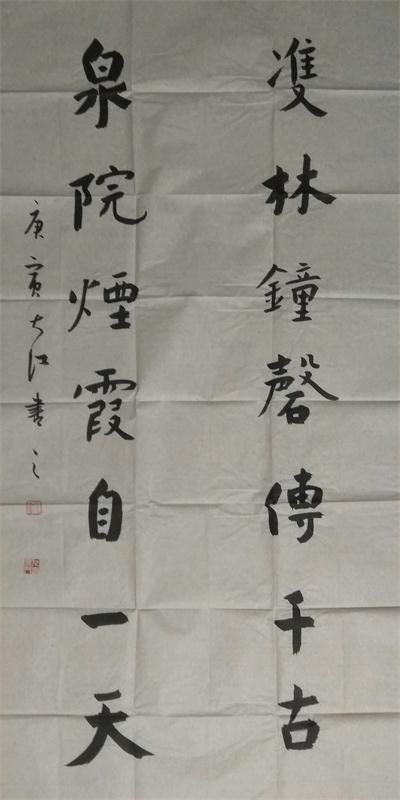 雙林鐘磬傳千古
泉院煙霞自一天
庚寅大江書之